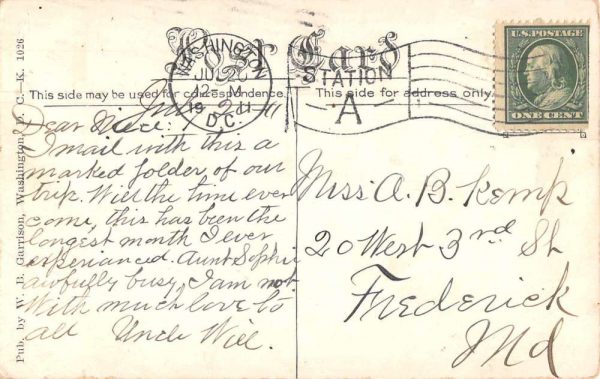 Post Card
WASHINGTON
JUL 20
12 - M
1911
D.C.
STATION
A
U.S. POSTAGE
ONE CENT
This side may be used for correspondence.
This side for address only.
Pub. by W. B. Garrison, Washington, D. C.—K. 1026
Dear Niece:
I mail with this a
marked folder of our
trip. Will the time ever
come, this has been the
longest month I ever
experianced. Aunt Sophi
awfully busy, I am not.
With much love to
all Uncle Will.
Miss A. B. Kemp
20 West 3rd St
Frederick
Md